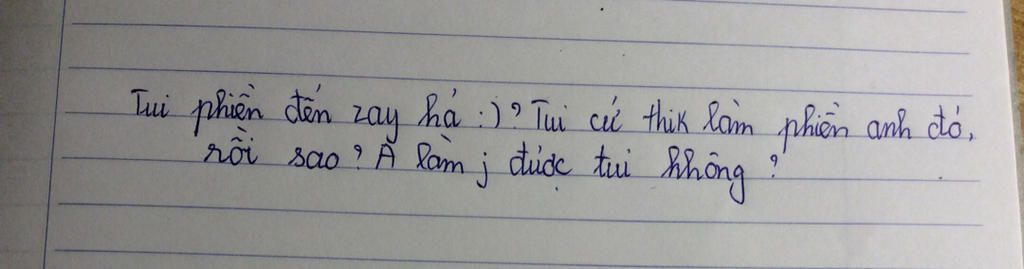 Tui phiền đến zay hả :)? Tui cứ thik làm phiền anh đó,
rồi sao? A làm j được tui không?